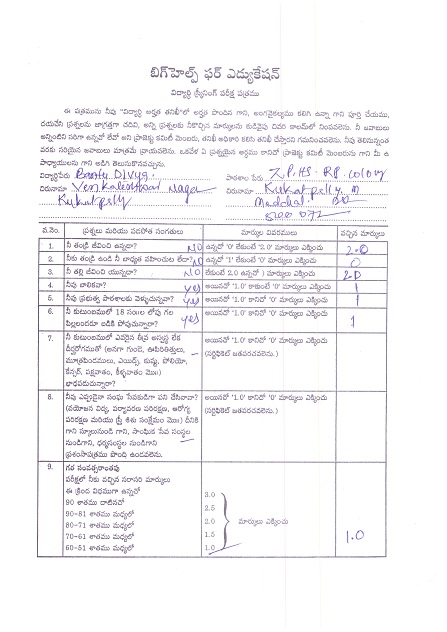 బిగ్‌హెల్ప్ ఫర్ ఎడ్యుకేషన్
విద్యార్థి స్క్రీనింగ్ పరీక్ష పత్రము
ఈ పత్రమును నీవు "విద్యార్థి అర్హత తనిఖీ"లో అర్హత పొందిన గాని, అంగవైకల్యము కలిగి ఉన్నా గాని పూర్తి చేయుము,
దయచేసి ప్రశ్నలను జాగ్రత్తగా చదివి, అన్ని ప్రశ్నలకు నీకొచ్చిన మార్కులను కుడివైపు చివరి కాలమ్‌లో నింపవలెను. నీ జవాబులు
అన్నింటిని సరిగా ఉన్నవో లేవో అని ప్రాజెక్టు కమిటీ మెంబరు, తనిఖీ అధికారి కలిసి తనిఖీ చేస్తారని గమనించవలెను. నీవు తెలిసినంత
వరకు సరియైన జవాబులు మాత్రమే వ్రాయవలెను. ఒకవేళ ఏ ప్రశ్నయైన అర్థము కానిచో ప్రాజెక్టు కమిటీ మెంబరును గాని మీ ఉ
పాధ్యాయులను గాని అడిగి తెలుసుకొనవచ్చును.
విద్యార్థిపేరు Bantu Divya. పాఠశాల పేరు Z.P.HS. RP. colony
చిరునామా Venkateshwar Nagar చిరునామా Kukatpally. M
Kukatpally Medchal. Dt
500 072
వ.నెం. ప్రశ్నలు మరియు పదపోత సంగతులు మార్కుల వివరములు వచ్చిన మార్కులు
1. నీ తండ్రి జీవించి ఉన్నడా? NO ఉన్నచో '0' లేకుంటే '2.0' మార్కులు ఎక్కించు 2.0
2. నీకు తండ్రి ఉండి నీ బాధ్యత వహించుట లేదా? NO ఉన్నచో '1' లేకుంటే '0' మార్కులు ఎక్కించు 0
3. నీ తల్లి జీవించి యున్నదా? NO లేకుంటే 2.0 ఉన్నచో ) మార్కులు ఎక్కించు 2.0
4. నీవు బాలికవా? yes అయినచో '1.0' కాకుంటే '0' మార్కులు ఎక్కించు 1
5. నీవు ప్రభుత్వ పాఠశాలకు వెళ్ళుచున్నావా? yes అయినచో '1.0' కానిచో '0' మార్కులు ఎక్కించు 1
6. నీ కుటుంబములో 18 సంలల లోపు గల
పిల్లలందరూ బడికి పోవుచున్నారా? yes అయినచో '1.0' కానిచో '0' మార్కులు ఎక్కించు 1
7. నీ కుటుంబములో ఎవరైన తీవ్ర అస్వస్థ లేక
దీర్ఘరోగముతో (అనగా గుండె, ఊపిరితిత్తులు,
మూత్రపిండములు, ఎయిడ్స్, కుష్ఠు, పోలియో,
కేన్సర్, పక్షవాతం, కీళ్ళవాతం మొ॥)
బాధపడుచున్నారా? - అయినచో '1.0' కానిచో '0' మార్కులు ఎక్కించు
(సర్టిఫికెట్ జతపరచవలెను.)
8. నీవు ఎప్పుడైనా సంఘ సేవకుడిగా పని చేసినావా?
(వయోజన విద్య, పర్యావరణ పరిరక్షణ, ఆరోగ్య
పరిరక్షణ మరియు స్త్రీ శిశు సంక్షేమం మొ॥) దీనికి
గాని స్కూలునుండి గాని, సాంఘిక సేవ సంస్థల
నుండిగాని, ధర్మసంస్థల నుండిగాని
ప్రశంసాపత్రము పొంది ఉండవలెను. - అయినచో '1.0' కానిచో '0' మార్కులు ఎక్కించు
(సర్టిఫికెట్ జతపరచవలెను.)
9. గత సంవత్సరాంతపు
పరీక్షలో నీకు వచ్చిన సరాసరి మార్కులు
ఈ క్రింద విధముగా ఉన్నచో
90 శాతము దాటినచో 3.0
90-81 శాతము మధ్యలో 2.5
80-71 శాతము మధ్యలో 2.0 మార్కులు ఎక్కించు
70-61 శాతము మధ్యలో 1.5 1.0
60-51 శాతము మధ్యలో 1.0